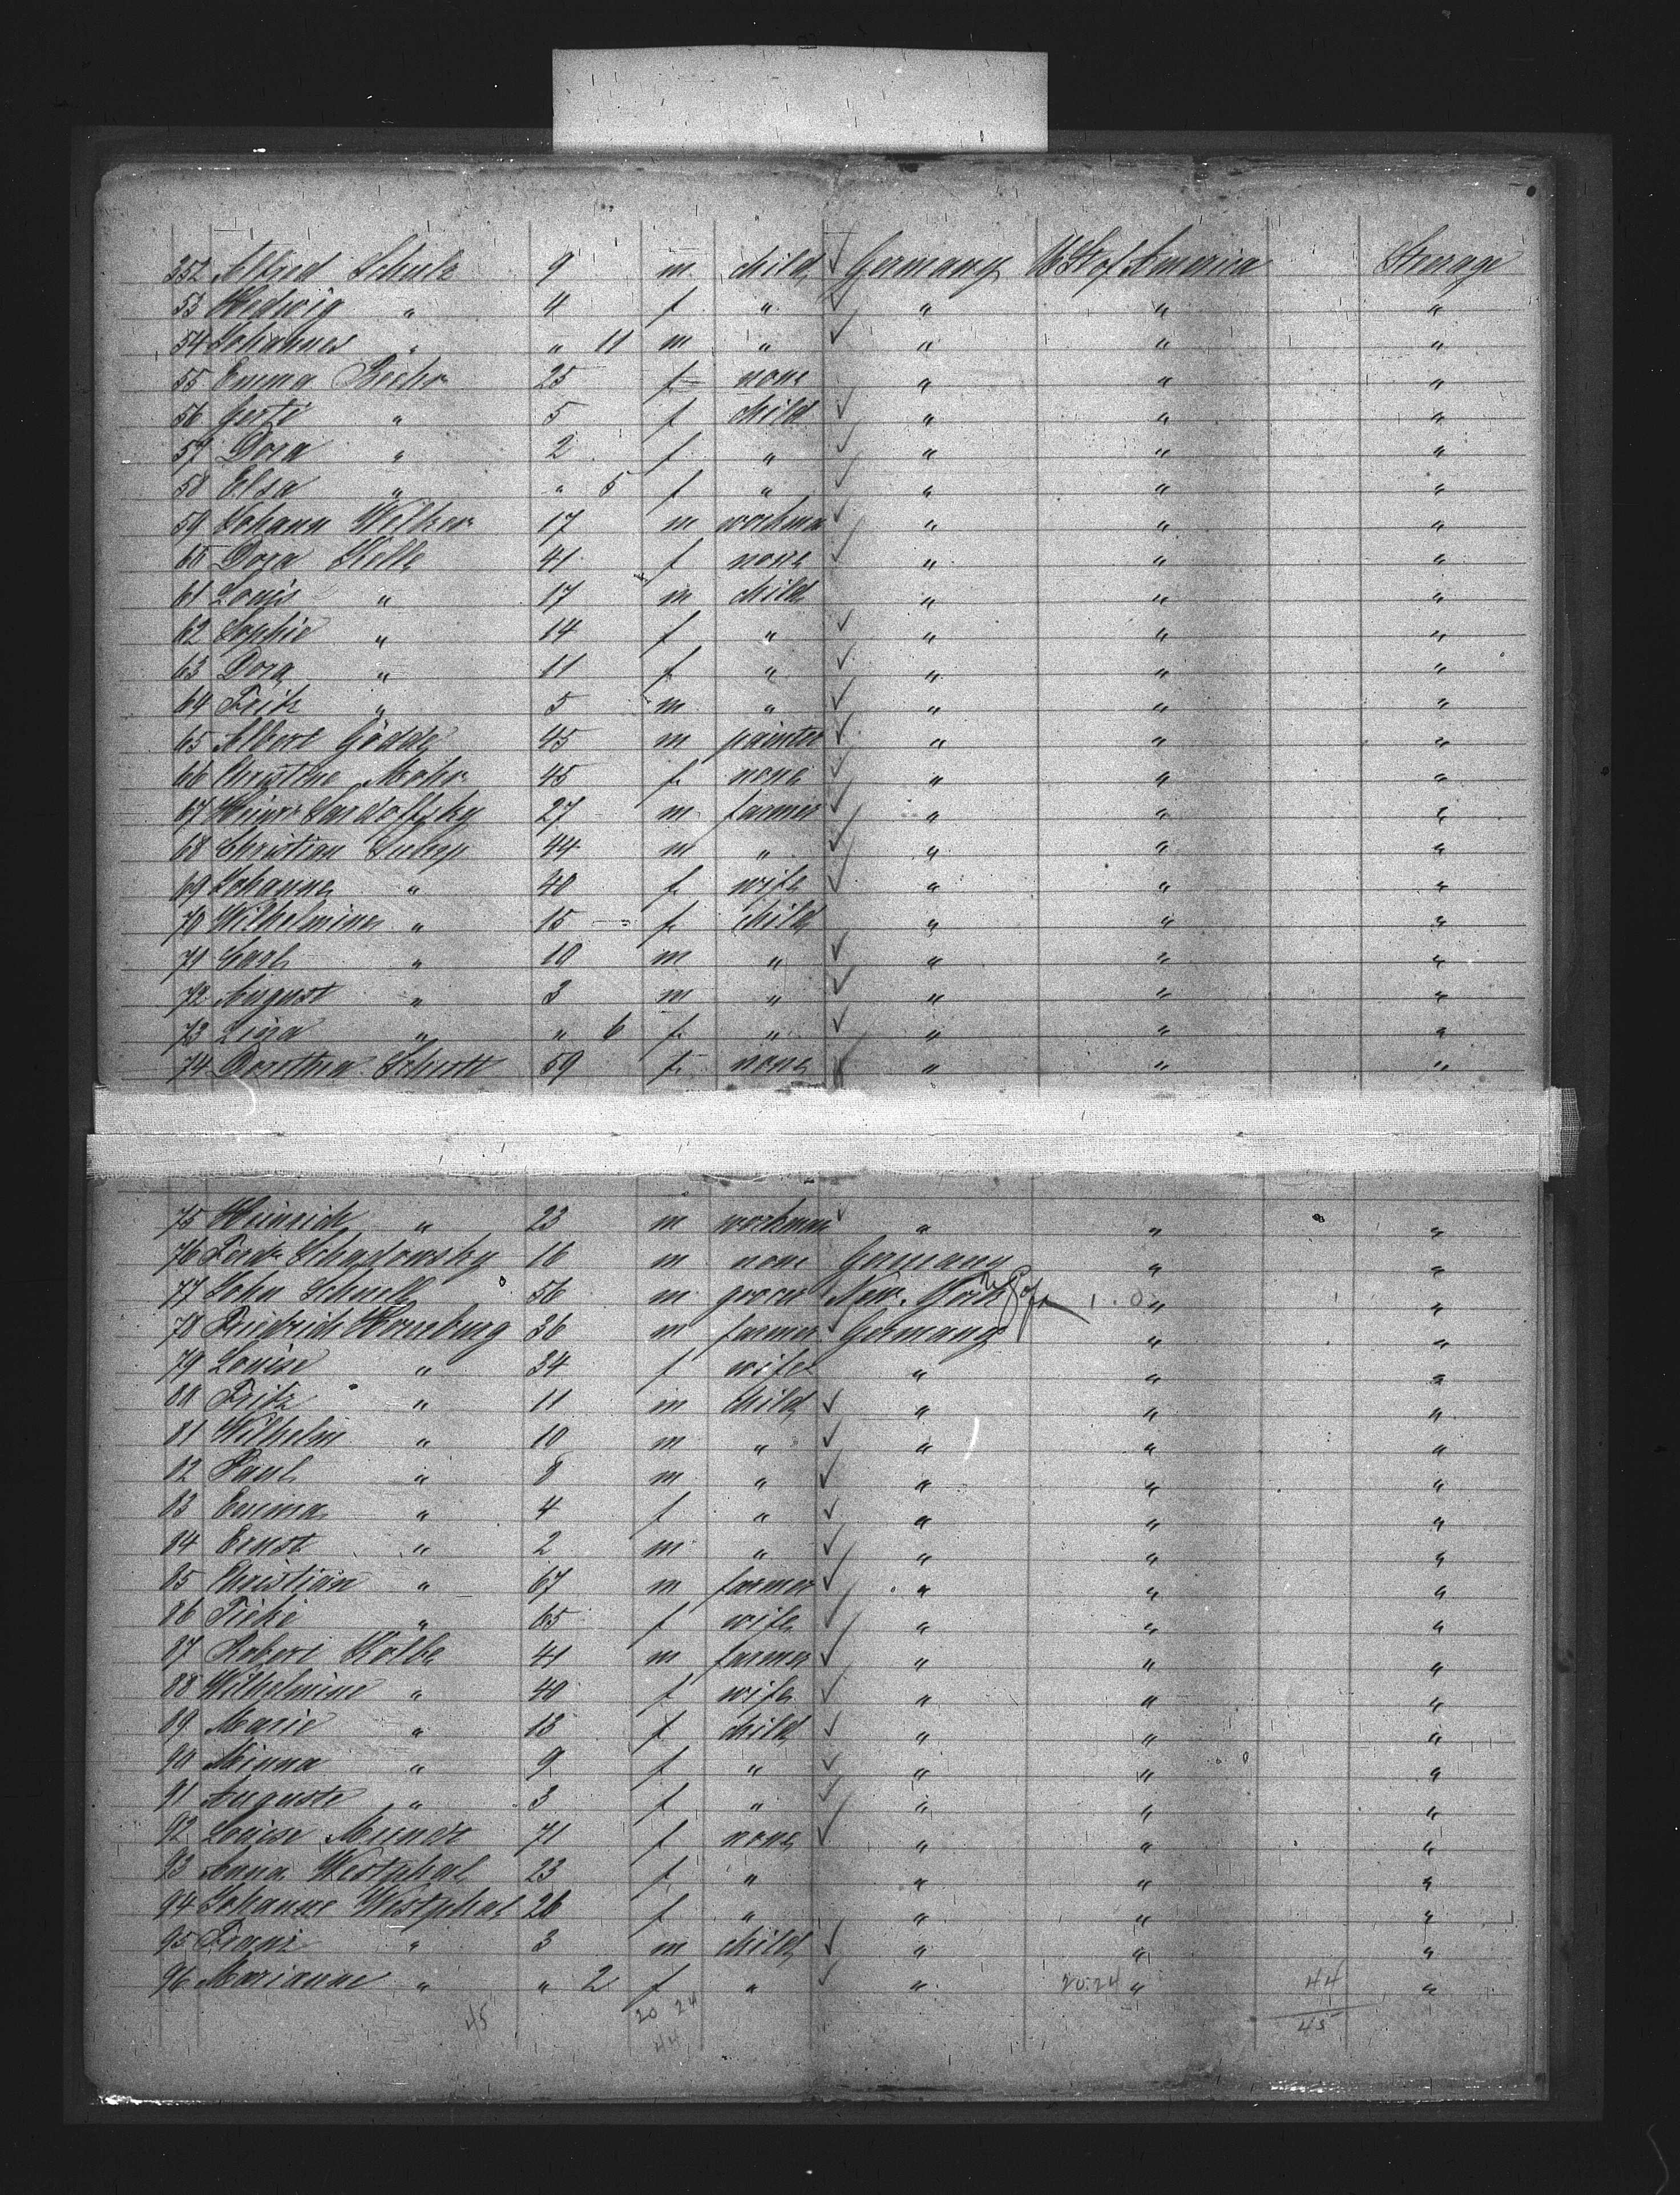 352 Alfred Schulz 9 m child ✓ Germany U St of America Steerage
53 Hedwig " 4 f " ✓ " " "
54 Johannes " " 11 m " ✓ " " "
55 Emma Beehr 25 f none " " "
56 Gerti " 5 f child ✓ " " "
57 Dora " 2 f " ✓ " " "
58 Elsa " " 5 f " ✓ " " "
59 Johann Welker 17 m workman ✓ " " "
60 Dora Kelle 41 f none ✓ " " "
61 Louis " 17 m child " " "
62 Sophie " 14 f " ✓ " " "
63 Dora " 11 f " ✓ " " "
64 Fritz " 5 m " ✓ " " "
65 Albert Gödde 45 m painter ✓ " " "
66 Christine Mohr 45 f none ✓ " " "
67 Heinr 27 m farmer ✓ " " "
68 Christian 44 m " ✓ " " "
69 Johanne " 40 f wife ✓ " " "
70 Wilhelmine " 15 f child " " "
71 Carl " 10 m " ✓ " " "
72 August " 3 m " ✓ " " "
73 Lina " " 6 f " ✓ " " "
74 Dorothea Schutt 59 f none ✓ " " "
75 Heinrich " 23 m workman ✓ " " "
76 Ferd. Schadowsky 16 m none Germany " "
77 John Schnell 56 m grocer New York " "
78 Friedrich Horneburg 36 m farmer Germany " "
79 Louise " 34 f wife " " "
80 Fritz " 11 m child ✓ " " "
81 Wilhelm " 10 m " ✓ " " "
82 Paul " 8 m " ✓ " " "
83 Emma " 4 f " ✓ " " "
84 Ernst " 2 m " ✓ " " "
85 Christian " 67 m farmer ✓ " " "
86 Fieke " 65 f wife ✓ " " "
87 Robert Kolbe 41 m farmer ✓ " " "
88 Wilhelmine " 40 f wife ✓ " " "
89 Marie " 13 f child ✓ " " "
90 Minna " 9 f " ✓ " " "
91 Auguste " 3 f " ✓ " " "
92 Louise Mundt 71 f none ✓ " " "
93 Anna Westphal 23 f " " " "
94 Johanne Westphal 26 f " " " "
95 Franz " 3 m child ✓ " " "
96 Marianne " " 2 f " ✓ " 20.24 " 44 "
45 20 24 45
44